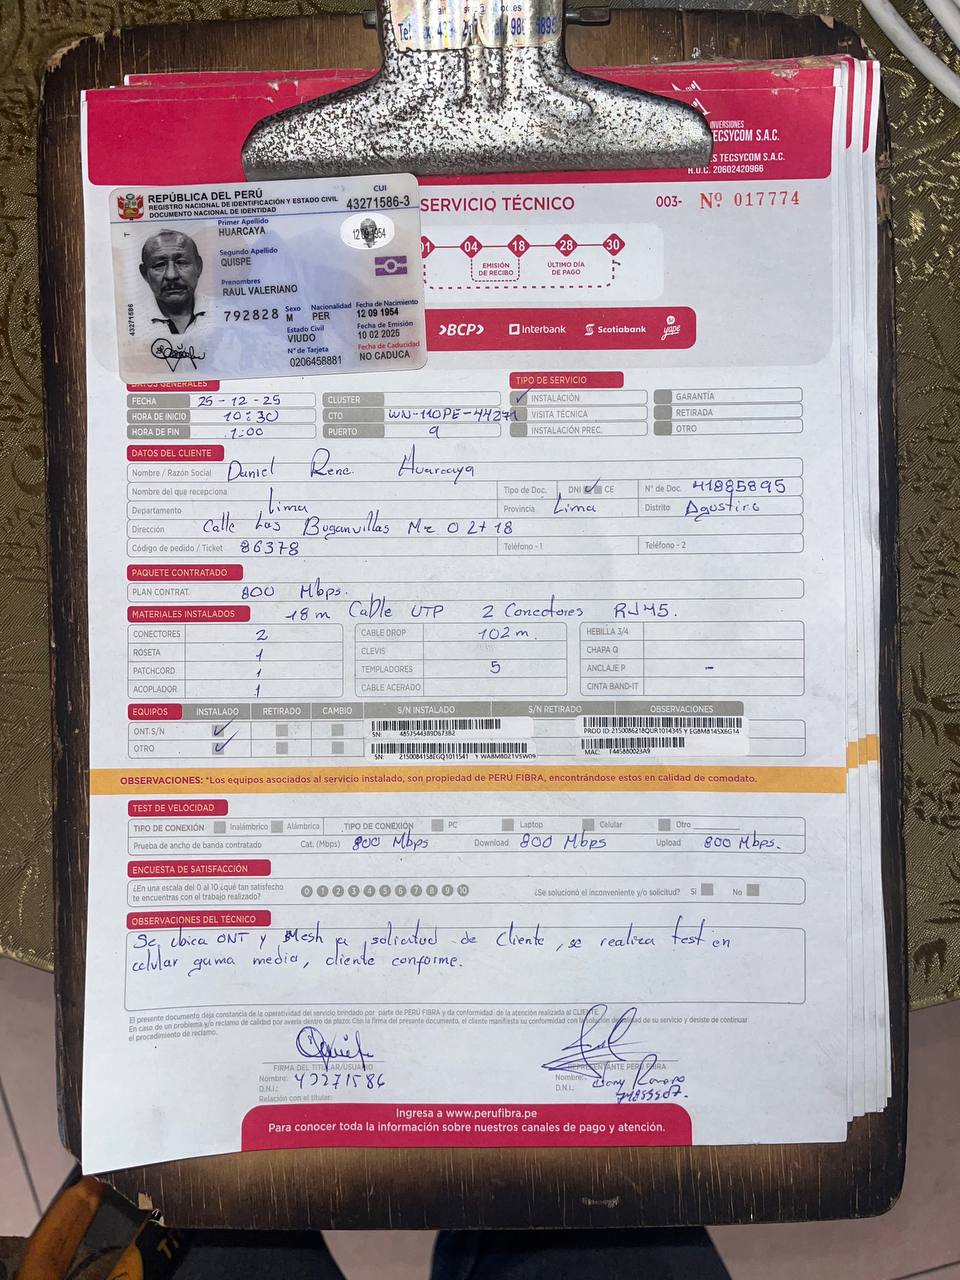 INVERSIONES
TECSYCOM S.A.C.
TECSYCOM S.A.C.
R.U.C. 20602420966
REPÚBLICA DEL PERÚ
REGISTRO NACIONAL DE IDENTIFICACIÓN Y ESTADO CIVIL
DOCUMENTO NACIONAL DE IDENTIDAD
CUI
43271586-3
Primer Apellido
HUARCAYA
Segundo Apellido
QUISPE
Prenombres
RAUL VALERIANO
792828
Sexo
M
Nacionalidad
PER
Fecha de Nacimiento
12 09 1954
Estado Civil
VIUDO
Fecha de Emisión
10 02 2025
N° de Tarjeta
0206458881
Fecha de Caducidad
NO CADUCA
43271586
SERVICIO TÉCNICO
003- Nº 017774
01 04 18 28 30
EMISIÓN DE RECIBO
ÚLTIMO DÍA DE PAGO
BCP Interbank Scotiabank yape
DATOS GENERALES
TIPO DE SERVICIO
FECHA 25-12-25 CLUSTER INSTALACIÓN GARANTÍA
HORA DE INICIO 10:30 CTO VISITA TÉCNICA RETIRADA
HORA DE FIN 1:00 PUERTO 9 INSTALACIÓN PREC. OTRO
DATOS DEL CLIENTE
Nombre / Razón Social Daniel Rene Huarcaya
Nombre del que recepciona Tipo de Doc. DNI CE N° de Doc. 41885895
Departamento Lima Provincia Lima Distrito Agustiro
Dirección Calle Las Buganvillas Mz O 2+18
Código de pedido / Ticket 86378 Teléfono - 1 Teléfono - 2
PAQUETE CONTRATADO
PLAN CONTRAT. 800 Mbps.
MATERIALES INSTALADOS 18 m Cable UTP 2 Conectores RJ45.
CONECTORES 2 CABLE DROP 102 m. HEBILLA 3/4
ROSETA 1 CLEVIS CHAPA Q
PATCHCORD 1 TEMPLADORES 5 ANCLAJE P -
ACOPLADOR 1 CABLE ACERADO CINTA BAND-IT
EQUIPOS INSTALADO RETIRADO CAMBIO S/N INSTALADO S/N RETIRADO OBSERVACIONES
ONT.S/N
OTRO
OBSERVACIONES: *Los equipos asociados al servicio instalado, son propiedad de PERÚ FIBRA, encontrándose estos en calidad de comodato.
TEST DE VELOCIDAD
TIPO DE CONEXIÓN Inalámbrico Alámbrica TIPO DE CONEXIÓN PC Laptop Celular Otro
Prueba de ancho de banda contratado Cat. (Mbps) 800 Mbps Download 800 Mbps Upload 800 Mbps.
ENCUESTA DE SATISFACCIÓN
¿En una escala del 0 al 10 ¿qué tan satisfecho
te encuentras con el trabajo realizado? 0 1 2 3 4 5 6 7 8 9 10 ¿Se solucionó el inconveniente y/o solicitud? Si No
OBSERVACIONES DEL TÉCNICO
Se ubica ONT y Mesh a solicitud de Cliente, se realiza test en
celular gama media, cliente conforme.
El presente documento deja constancia de la operatividad del servicio brindado por parte de PERÚ FIBRA y da conformidad de la atención realizada al CLIENTE.
En caso de un problema y/o reclamo de calidad por avería dentro de plazo: Con la firma del presente documento, el cliente manifiesta su conformidad con la solución de su servicio y desiste de continuar
el procedimiento de reclamo.
FIRMA DEL TITULAR/USUARIO REPRESENTANTE PERÚ FIBRA
Nombre: Nombre: Romero
D.N.I.: 43271586 D.N.I.:
Relación con el titular:
Ingresa a www.perufibra.pe
Para conocer toda la información sobre nuestros canales de pago y atención.